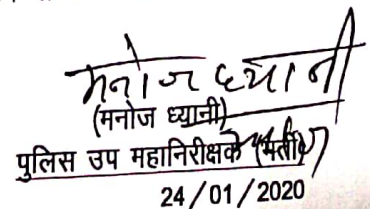 मनोज ध्यानी
(मनोज ध्यानी)
पुलिस उप महानिरीक्षक (भर्ती)
24/01/2020